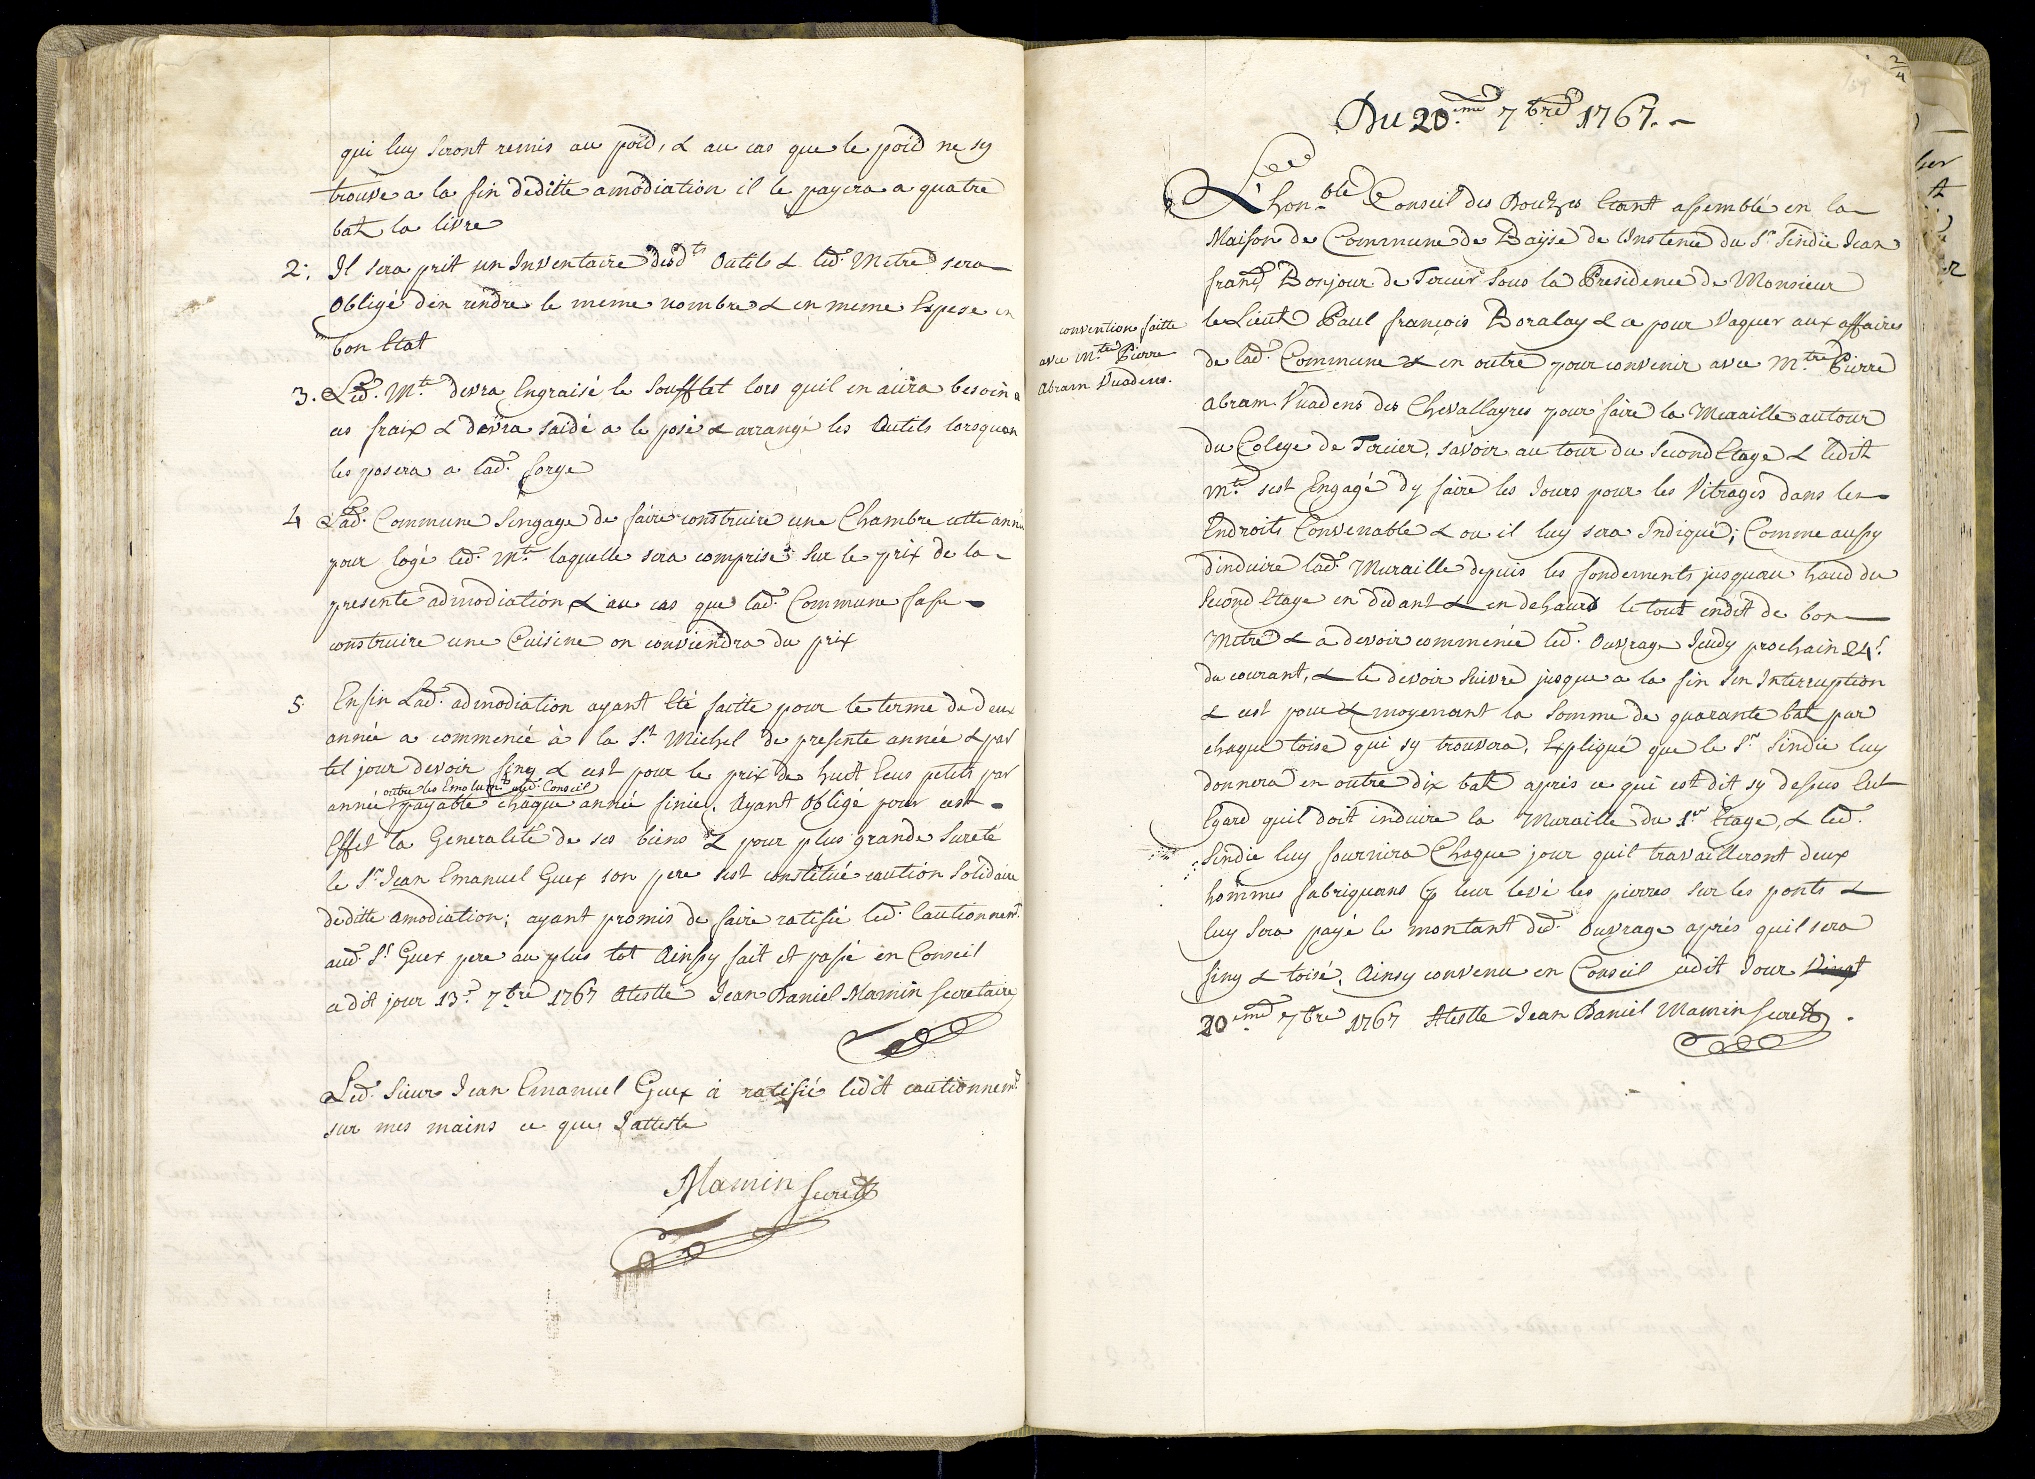 qui luy seront remis au poid, & au cas que le poid ne sy
trouve a la fin deditte amodiation il le payera a quatre
bat la livre
2. Il sera prit un Inventaire desd.ts Outils & led. Metre sera
Obligé d'en rendre le meme nombre & en meme Espese en
bon Etat
3. Led. M.tre devra Engraisé le Soufflet lors quil en aura besoin a
ces fraix & devra saidé a le posé & arrangé les Outils lorsquon
les posera a lad. forge
4 Lad. Commune Sengage de faire construire une Chambre cette année
pour logé led. M.tre laquelle sera comprise sur le prix de la
presente admodiation & au cas que lad. Commune fasse
construire une Cuisine on conviendra du prix
5 Enfin Lad. admodiation ayant Eté faitte pour le terme de deux
année a commencé à la S.t Michel de presente année & par
tel jour devoir finy & cest pour le prix de huit Ecus petits par
outre les Emolum.ts aud. Conseil
année payable chaque année finie. Ayant Obligé pour cest
Effet la Generalité de ses biens & pour plus grande Sureté
le S.r Jean Emanuel Guex son pere sest constitué caution Solidaire
deditte amodiation; ayant promis de faire ratifié led. Cautionnem.t
aud. S.r Guex pere au plus tot Ainsy fait et passé en Conseil
cedit jour 13.e 7bre 1767 Atestte Jean Daniel Mamin Secretaire
Led. Sieur Jean Emanuel Guex à ratifié ledit cautionnem.t
sur mes mains ce que J'atteste
Mamin Secret.
2/4
Du 20.eme 7bre 1767.
L'hon.ble Conseil des Douhzes Etant assemblé en la
Maison de Commune de Bayse de Instence du S.r Sindic Jean
franç. Bonjour de Tercier Sous la Presidence de Monsieur
le Lieut Paul françois Boralay & ce pour Vaquer aux affaires
de lad. Commune & en outre pour convenir avec M.tre Pierre
convention faitte
avec M.tre Pierre
Abram Vuadens.
Abram Vuadens des Chevallayres pour faire la Muraille autour
du Colege de Tercier, savoir au tour du Second Etage & ledit
M.tre sest Engagé dy faire les Jours pour les Vitrages dans les
Endroits Convenable & ou il luy sera Indiqué; Comme aussy
dinduire lad. Muraille depuis les fondements jusquau haud du
Second Etage en dedant & en dehaurs le tout endit de bon
Metre & a devoir commencé led. Ouvrage Jeudy prochain 24.e
du courant, & le devoir Suivre jusque a la fin Sen Interruption
& cest pour & moyenant la Somme de quarante bat par
chaque toise qui sy trouvera, Expliqué que le S.r Sindic luy
donnera en outre dix bat apres ce qui est dit sy dessus Eut
Egard quil doit induire la Muraille du 1.er Etage, & led.
Sindic luy fournira Chaque jour quil travailleront deux
hommes fabriquans & leur levé les pierres sur les ponts &
luy Sera payé le montant dud. Ouvrage après quil sera
finy & toisé. Ainsy convenu en Conseil cedit Jour Vingt
20.eme 7bre 1767 Atestte Jean Daniel Mamin Secret.